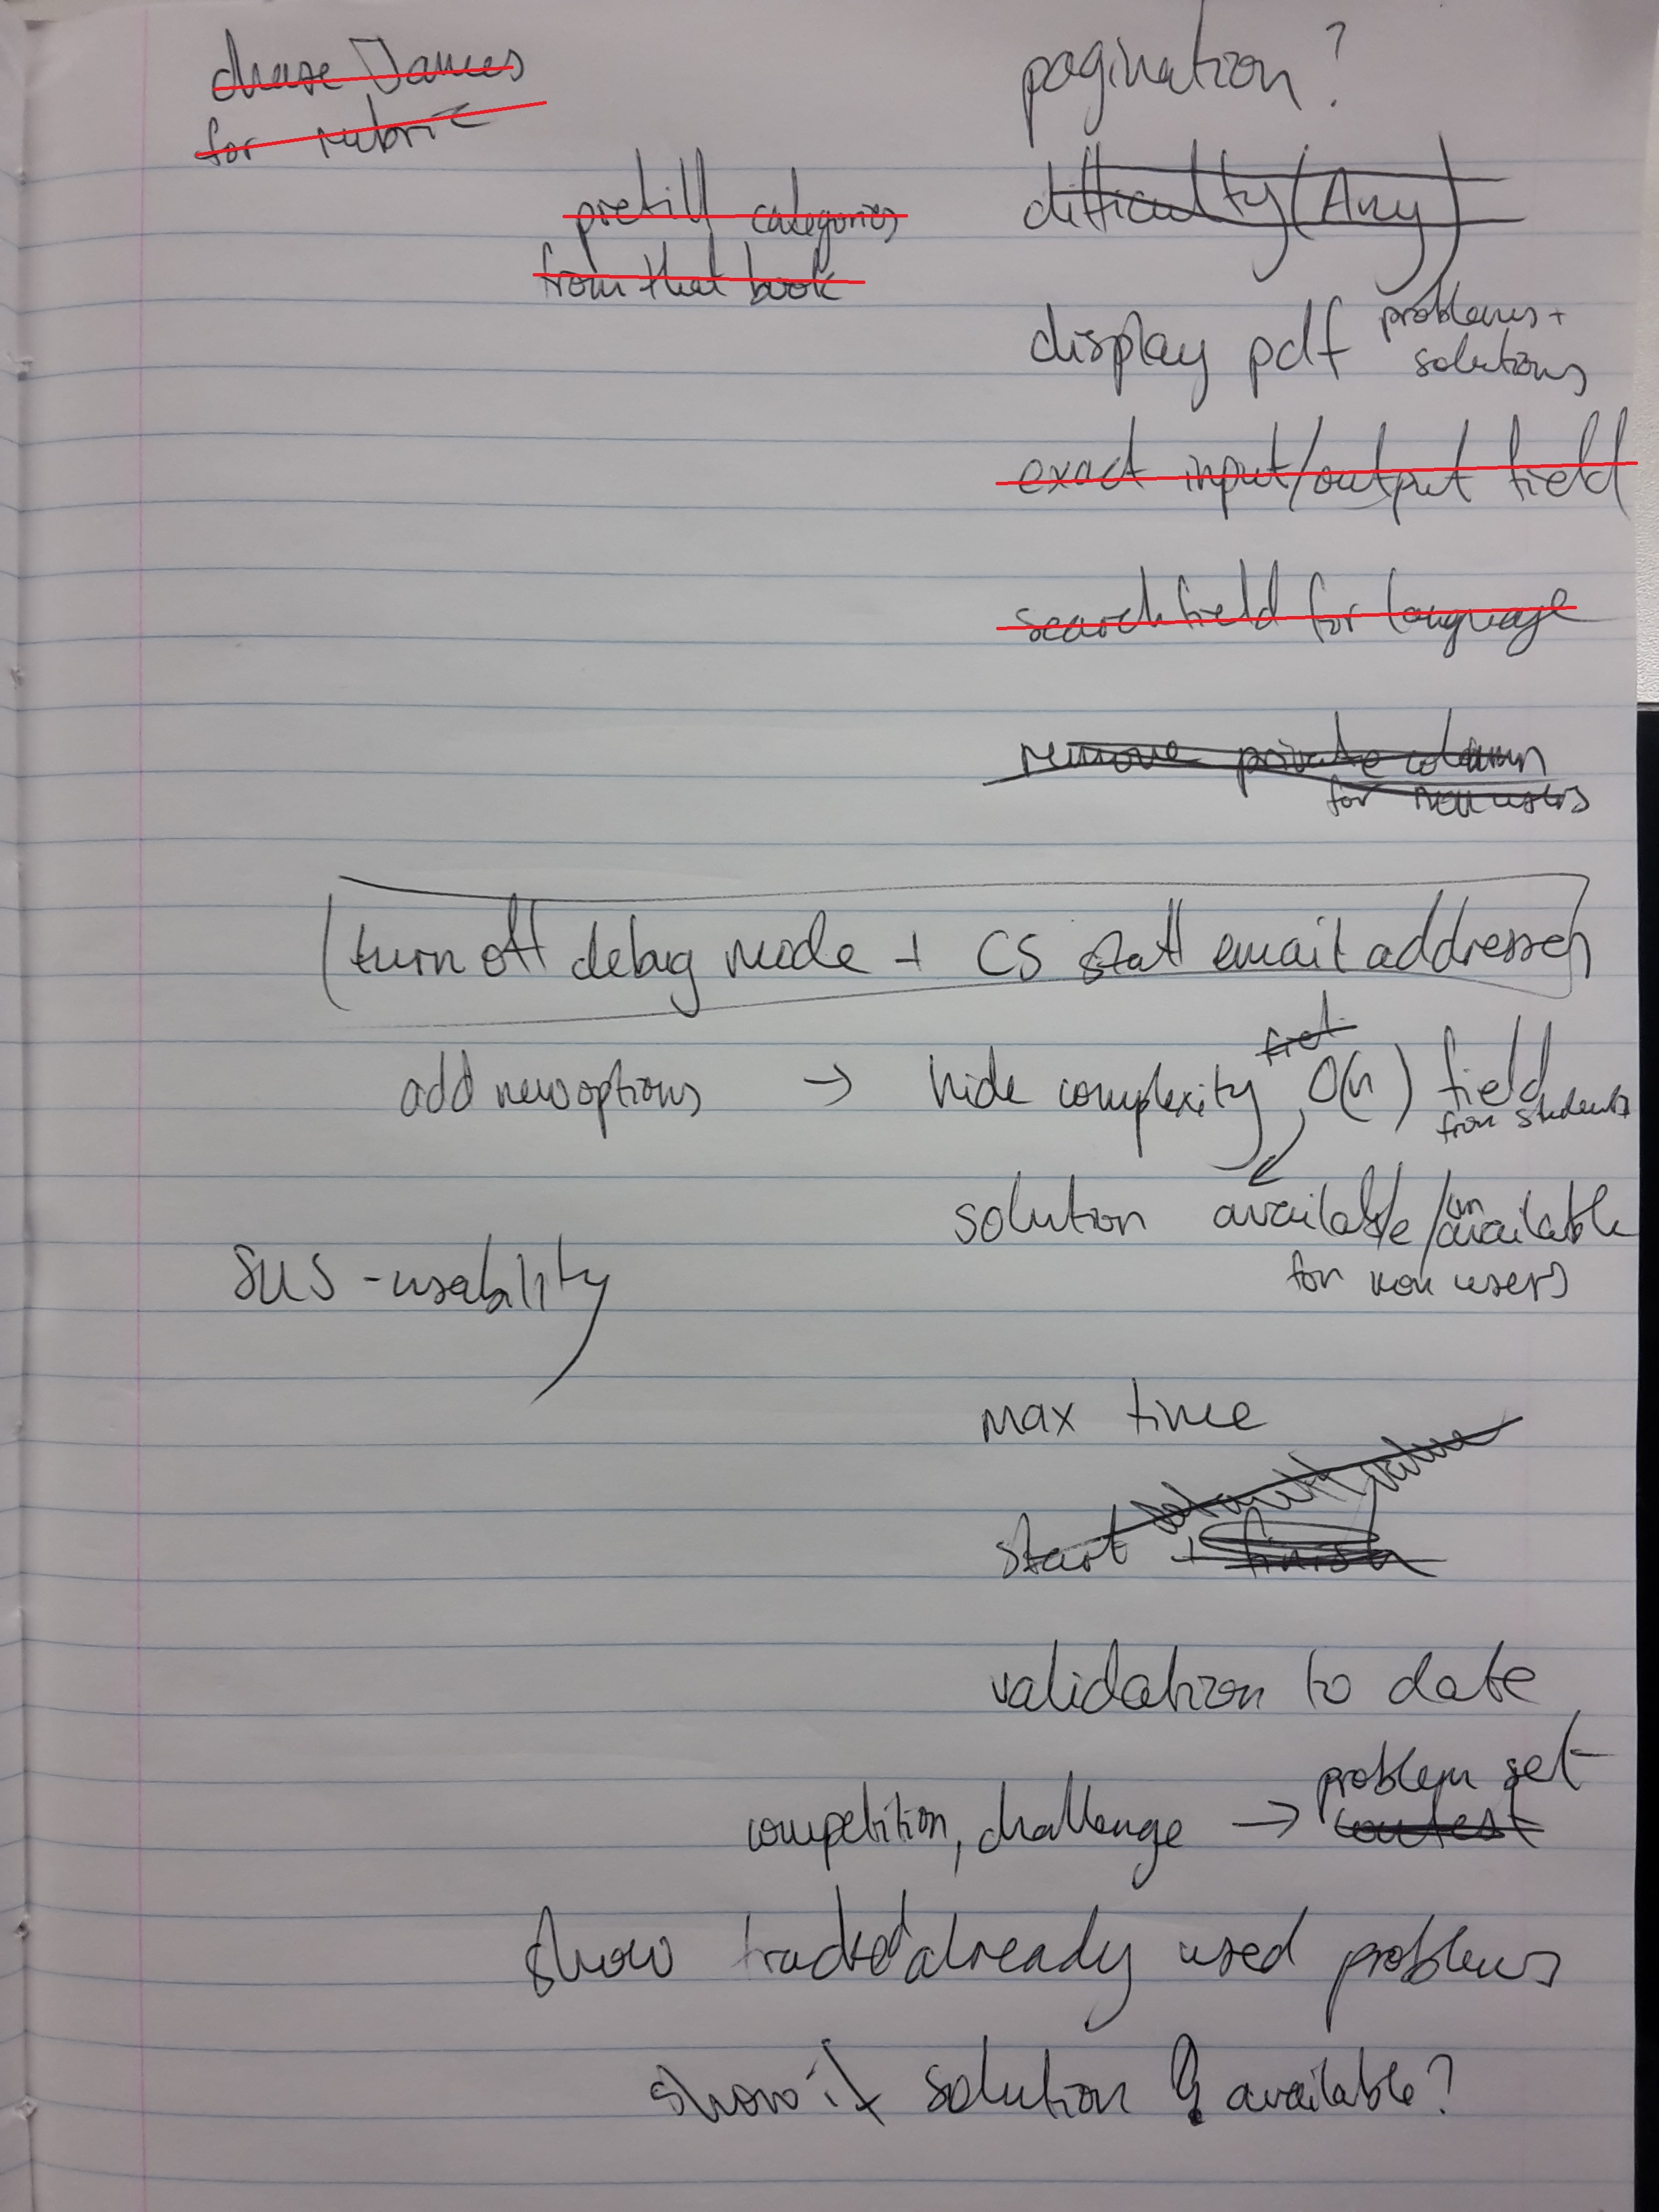 chase James
for rubric
pagination?
prefill categories
from that book
difficulty (Any)
display pdf problems +
solutions
exact input/output field
search field for language
remove private column
for non users
turn off debug mode + CS staff email addresses
add new options → hide complexity O(n) field
from students
solution available/unavailable
for non users
SUS - usability
max time
start + finish
validation to date
problem set
competition, challenge → contest
show tracked already used problems
show if solution available?